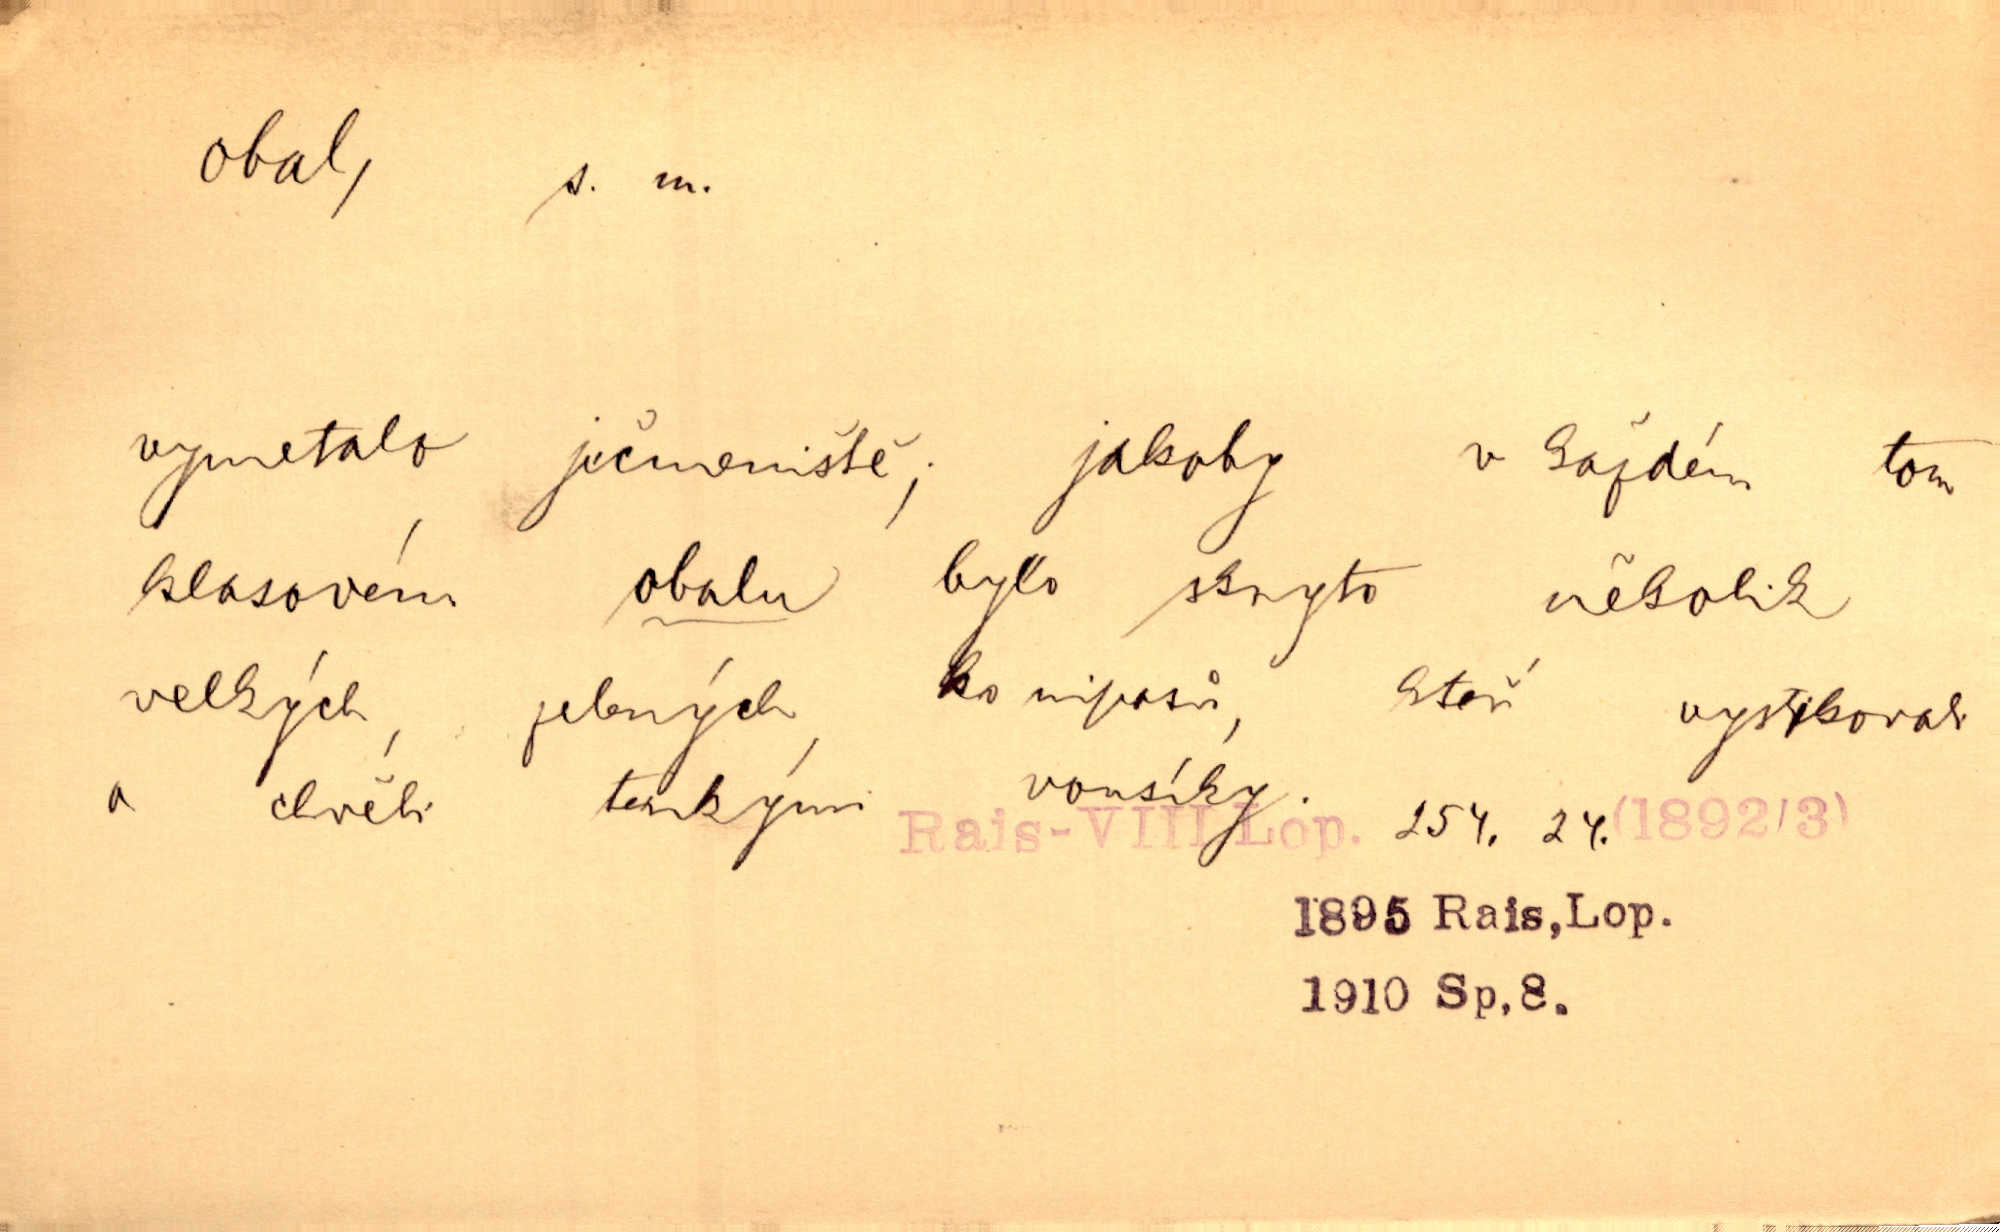 obal, s. m.
vymetalo ječmeniště; jakoby v každém tom
klasovém obalu bylo skryto několik
velkých, zelených koníčků, kteří vystrkovali
a chvěli tenkými vousíky.
Rais-VIII Lop. 254. 24. (1892/3)
1895 Rais, Lop.
1910 Sp, 8.